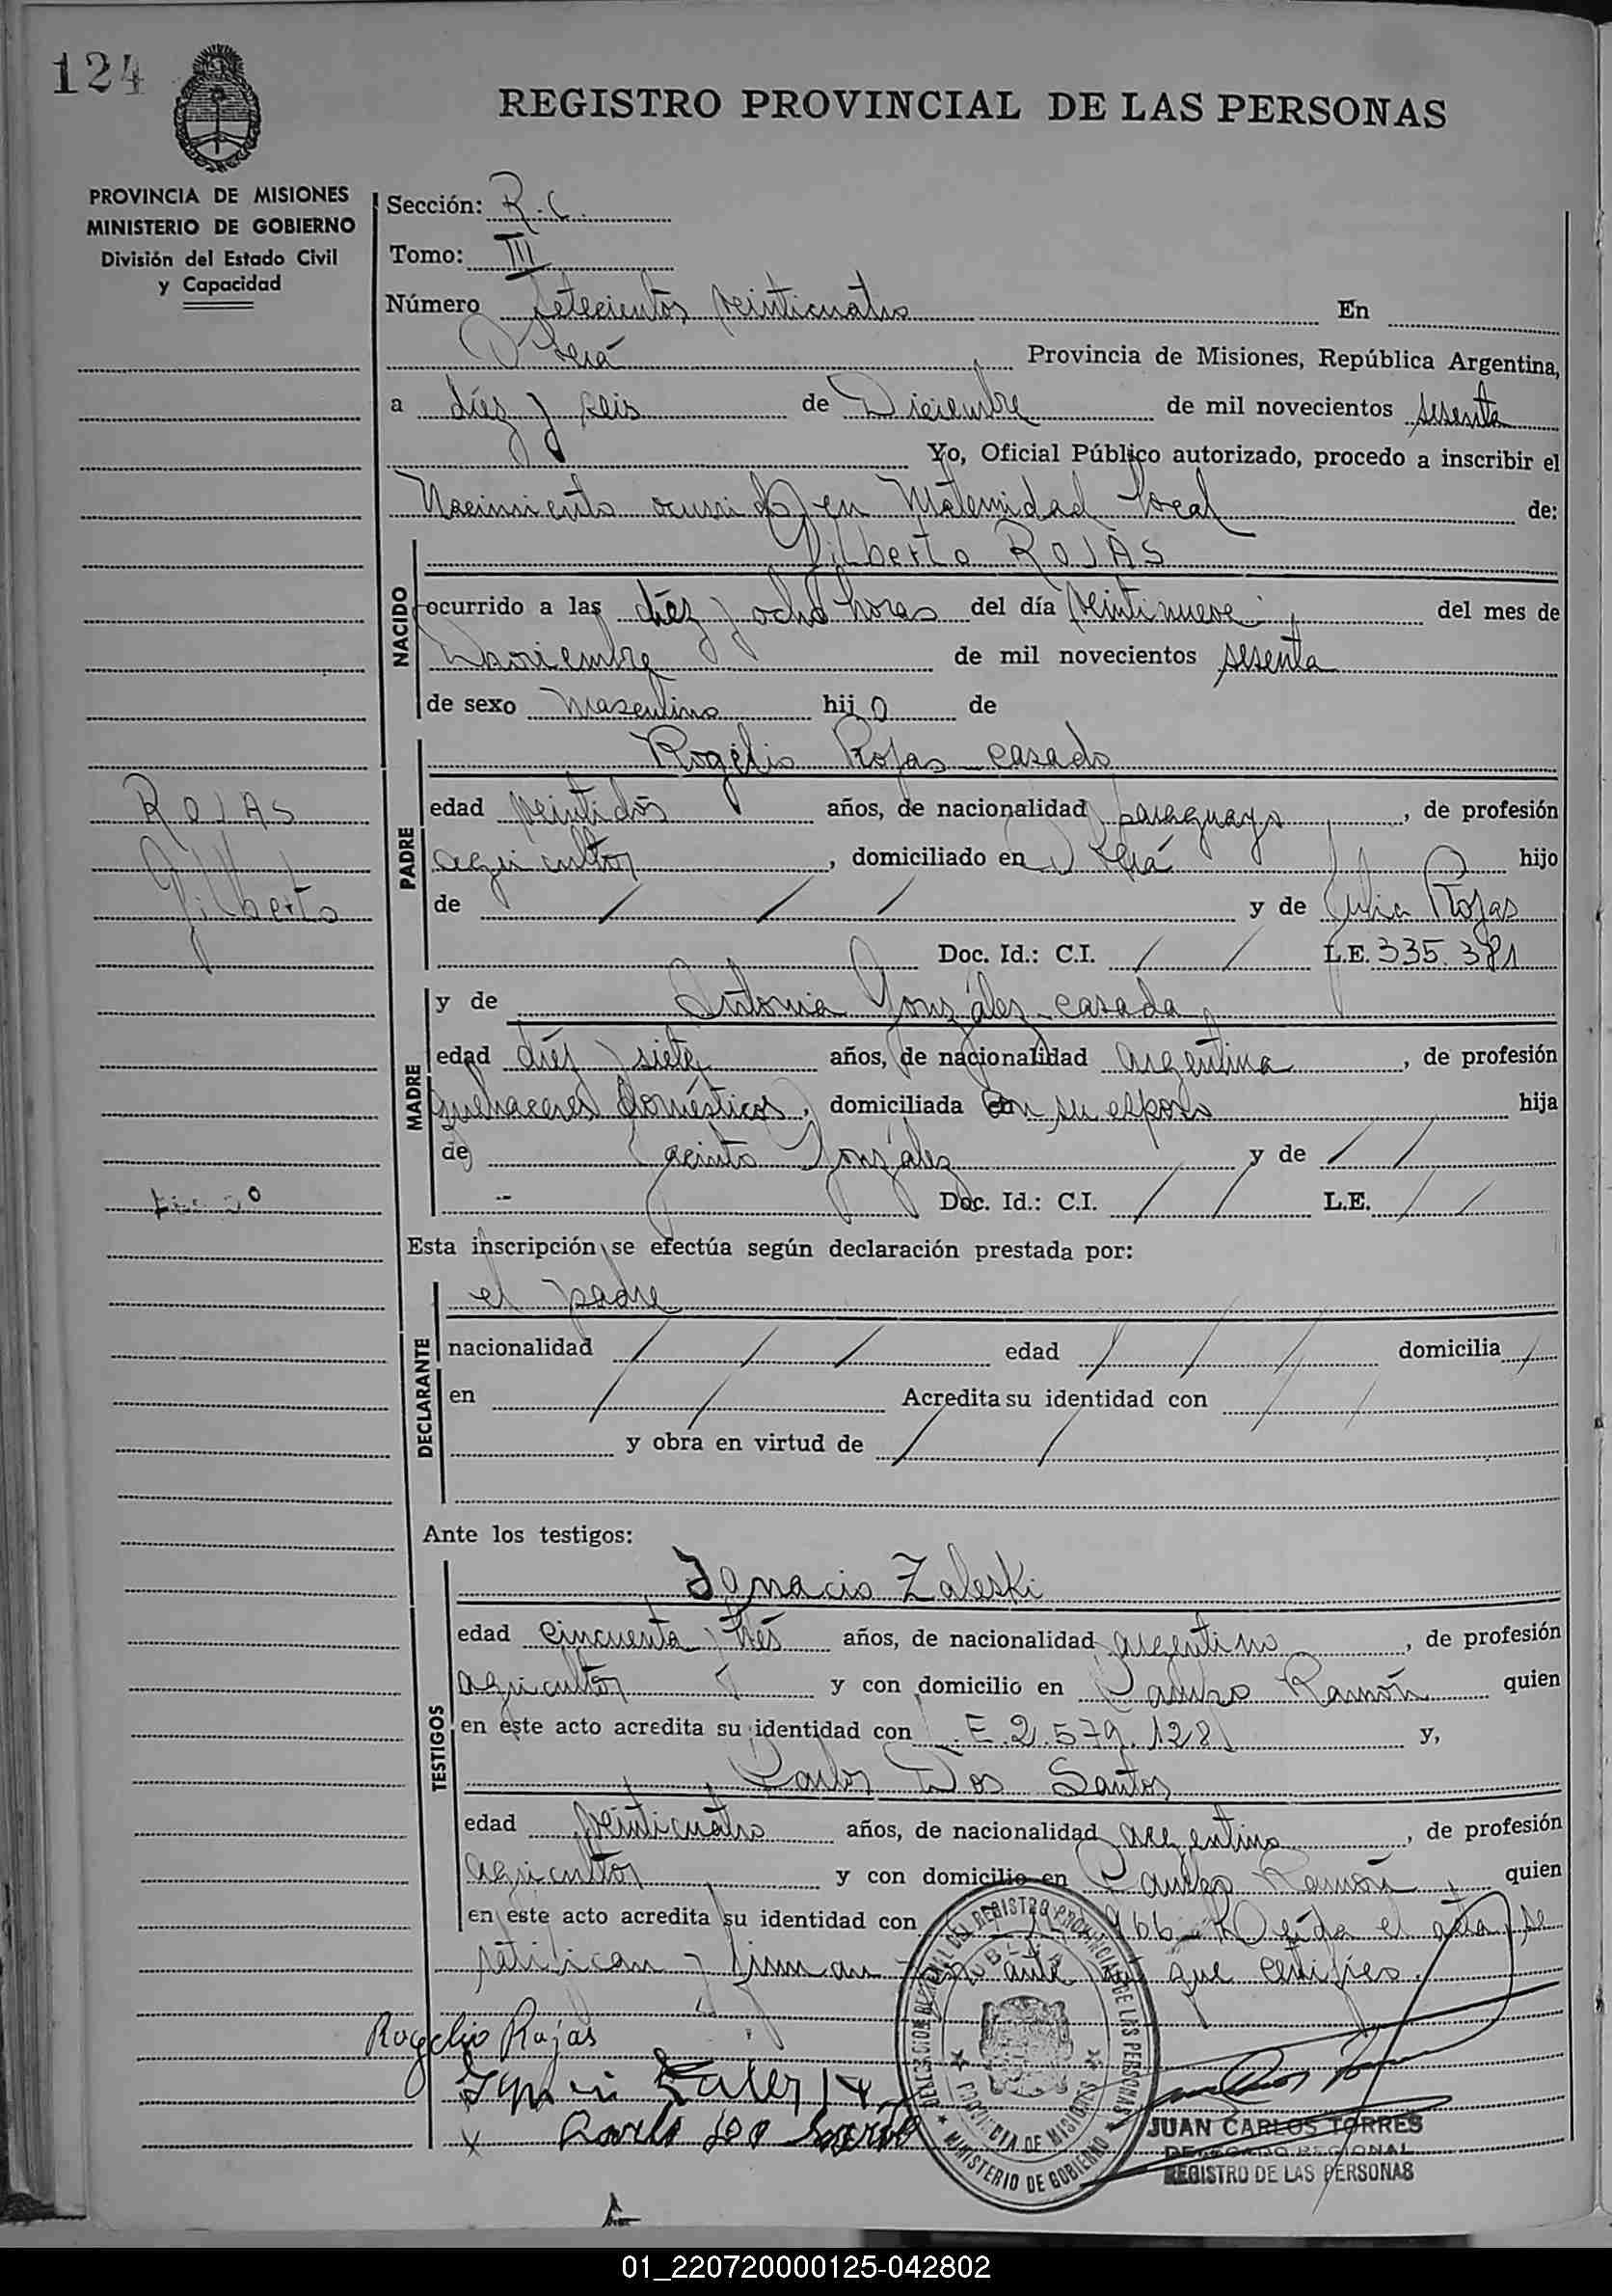 124
REGISTRO PROVINCIAL DE LAS PERSONAS
PROVINCIA DE MISIONES
MINISTERIO DE GOBIERNO
División del Estado Civil
y Capacidad
Sección: R.C.
Tomo: III
Número Setecientos veinticuatro En
Oberá Provincia de Misiones, República Argentina,
a diez y seis de Diciembre de mil novecientos sesenta
Yo, Oficial Público autorizado, procedo a inscribir el
Nacimiento ocurrido en Maternidad local de:
NACIDO
Gilberto ROJAS
ocurrido a las diez y ocho horas del día veintinueve del mes de
Noviembre de mil novecientos sesenta
de sexo masculino hijo de
Rogelio Rojas - casado
ROJAS
Gilberto
PADRE
edad veintidós años, de nacionalidad paraguayo, de profesión
agricultor, domiciliado en Oberá hijo
de / / / y de Julia Rojas
Doc. Id.: C.I. / / L.E. 335.381
MADRE
y de Antonia González - casada
edad diez y siete años, de nacionalidad argentina, de profesión
quehaceres domésticos, domiciliada con su esposo hija
de Jacinto González y de / /
Doc. Id.: C.I. / / L.E. / /
Esta inscripción se efectúa según declaración prestada por:
DECLARANTE
el padre
nacionalidad / / / edad / / / domicilia /
en / / Acredita su identidad con / /
y obra en virtud de / /
Ante los testigos:
TESTIGOS
Ignacio Zaleski
edad cincuenta y tres años, de nacionalidad argentino, de profesión
agricultor y con domicilio en Campo Ramón quien
en este acto acredita su identidad con L.E. 2.579.128 y,
Carlos Dos Santos
edad veinticuatro años, de nacionalidad argentino, de profesión
agricultor y con domicilio en Campo Ramón quien
en este acto acredita su identidad con 966 - Leída el acta, se
ratifican y firman ante que certifico.
Rogelio Rojas
DELEGACION REGIONAL DEL REGISTRO PROVINCIAL DE LAS PERSONAS
PROVINCIA DE MISIONES
MINISTERIO DE GOBIERNO
JUAN CARLOS TORRES
DELEGADO REGIONAL
REGISTRO DE LAS PERSONAS
01_220720000125-042802